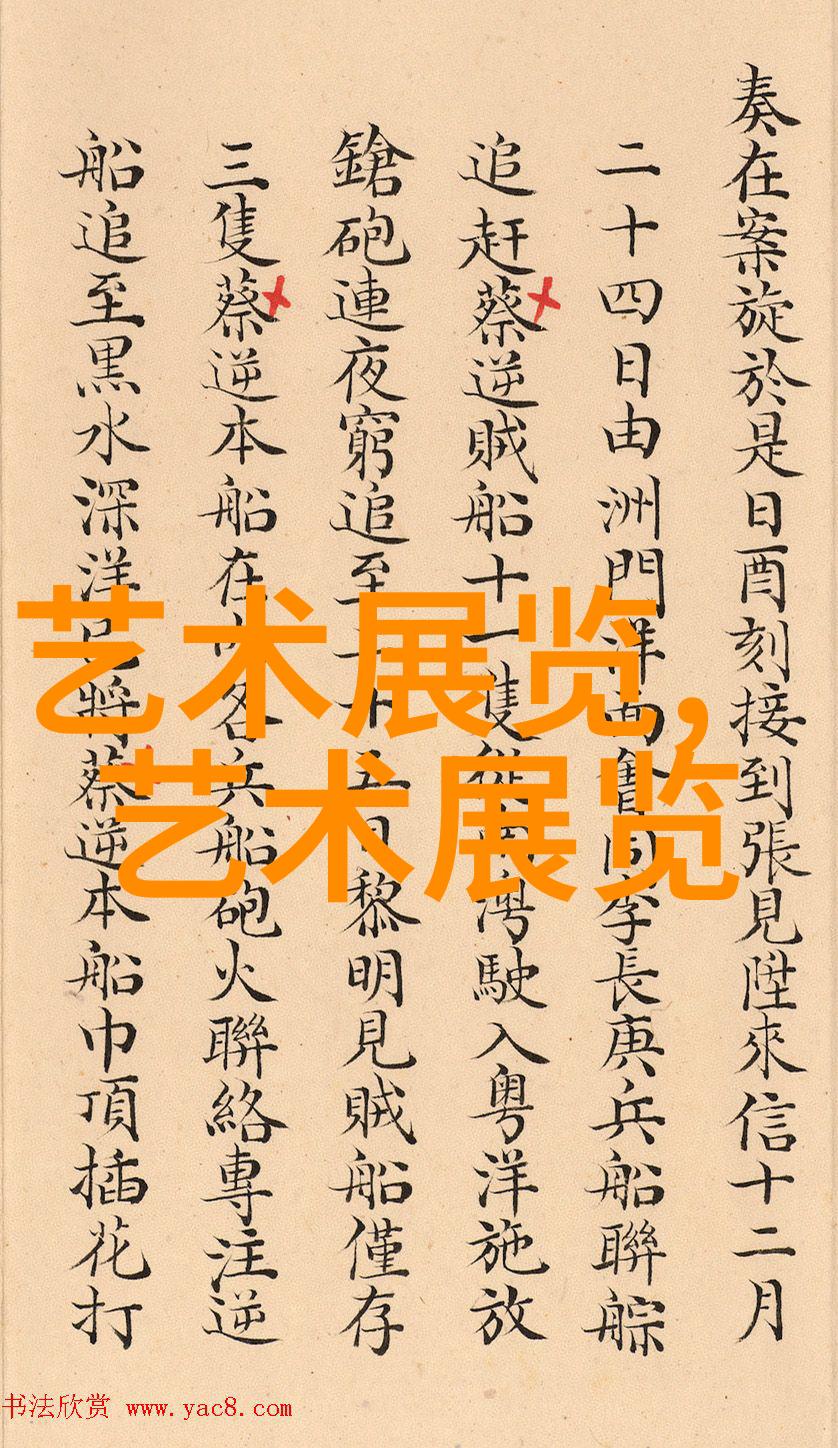 奏在案旋於是日酉刻接到張見陞來信十二月
二十四日由洲門洋面同李長庚兵船聯䑸
追赶蔡逆賊船十一隻灣駛入粤洋施放
鎗砲連夜窮追至二十五日黎明見賊船僅存
三隻蔡逆本船在內各兵船砲火聯絡專注逆
船追至黒水深洋已將蔡逆本船巾頂插花打
艺术展览,
艺术展览
书法欣赏 www.yac8.com